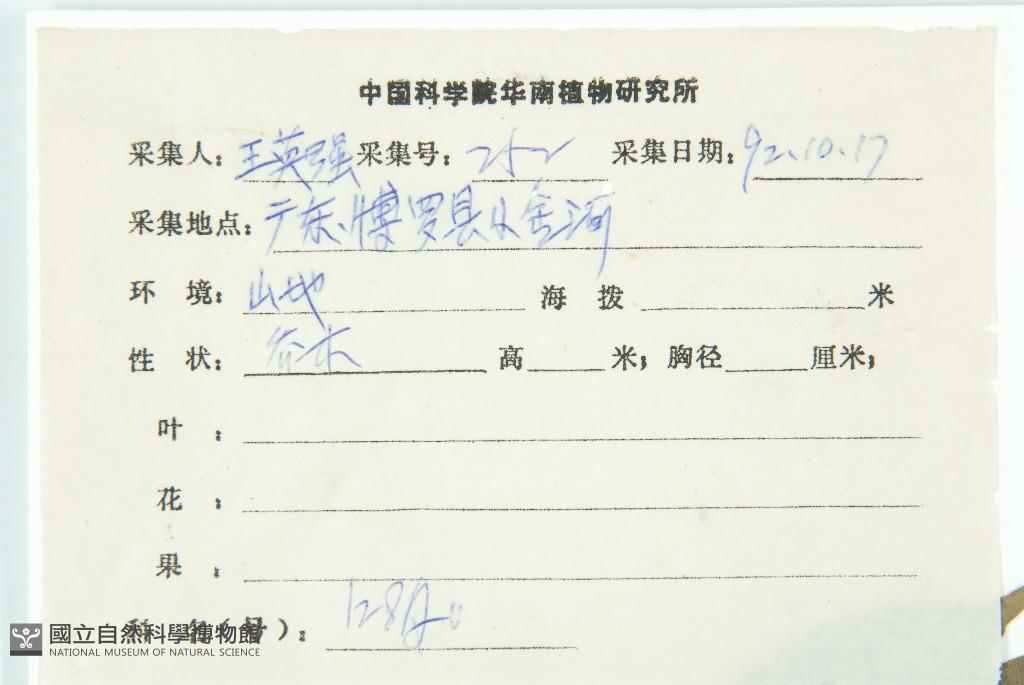 中国科学院华南植物研究所
采集人：王英强 采集号：252 采集日期：92.10.17
采集地点：广东、博罗县 金河
环 境：山地 海 拨 米
性 状：乔木 高 米；胸径 厘米；
叶 ：
花 ：
果 ：
（号）： 128
國立自然科學博物館
NATIONAL MUSEUM OF NATURAL SCIENCE